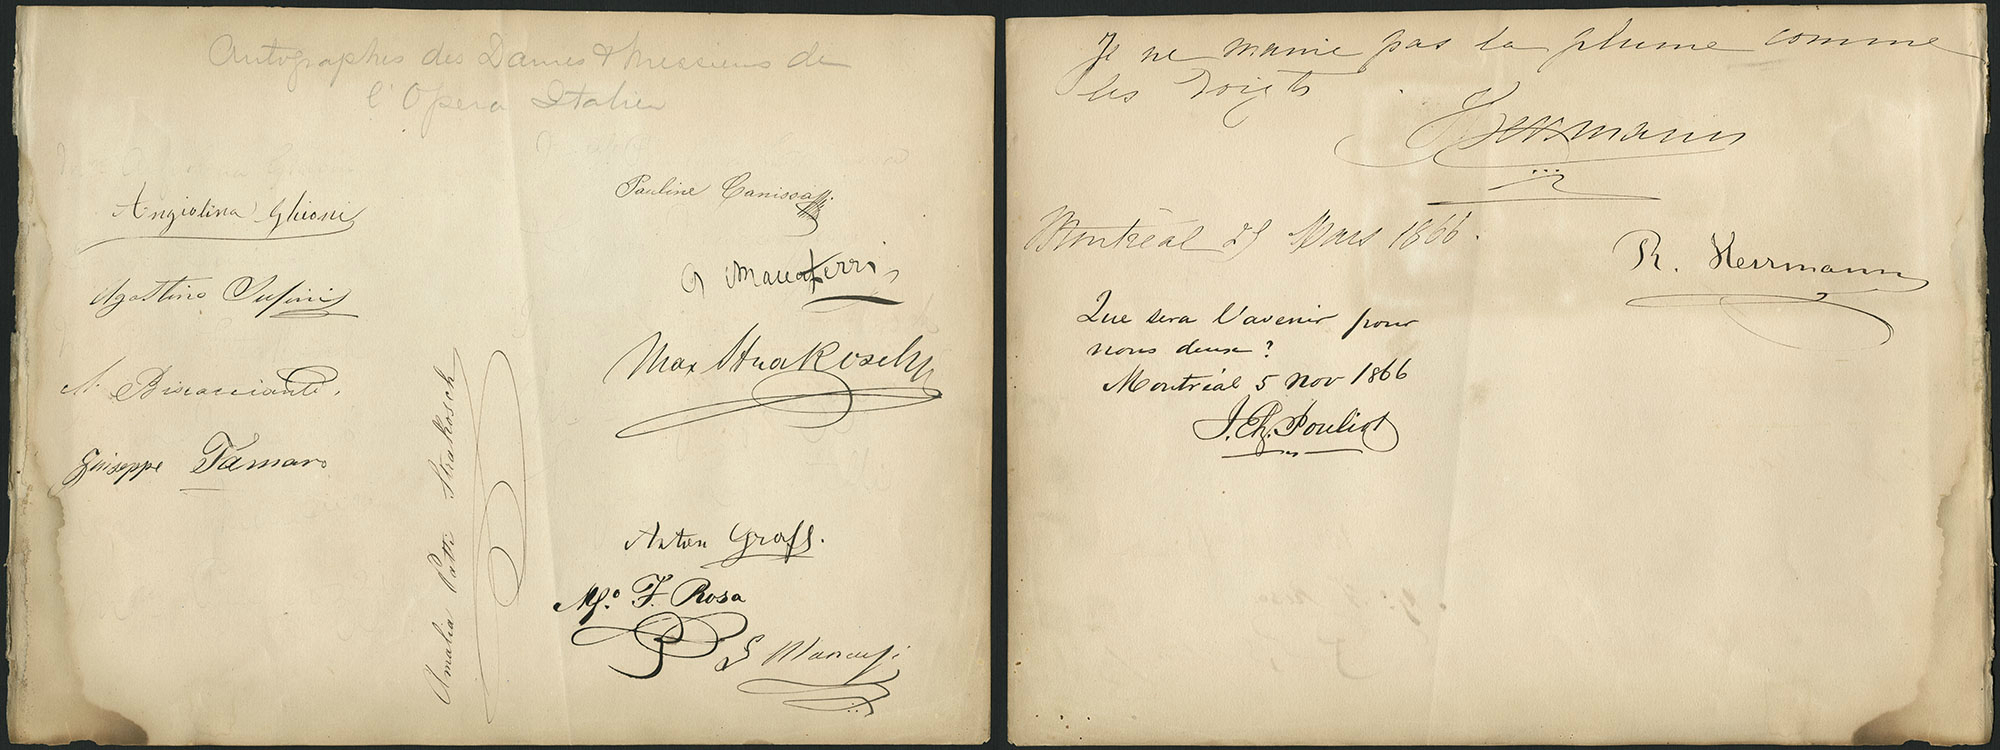 Autographes des Dames & Messieurs de
l'Opera Italien
Angiolina Ghioni
Agostino Susini
A. Biscaccianti.
Giuseppe Tamaro
Amalia Patti Strakosch
Pauline Canissa
Max Strakosch
Anton Graff.
Mo. F. Rosa
Je ne manie pas la plume comme
les doigts
Herrmann
Montréal 29 Mars 1866.
R. Herrmann
Que sera l'avenir pour
nous deux?
Montréal 5 nov 1866
J. Ch. Pouliot